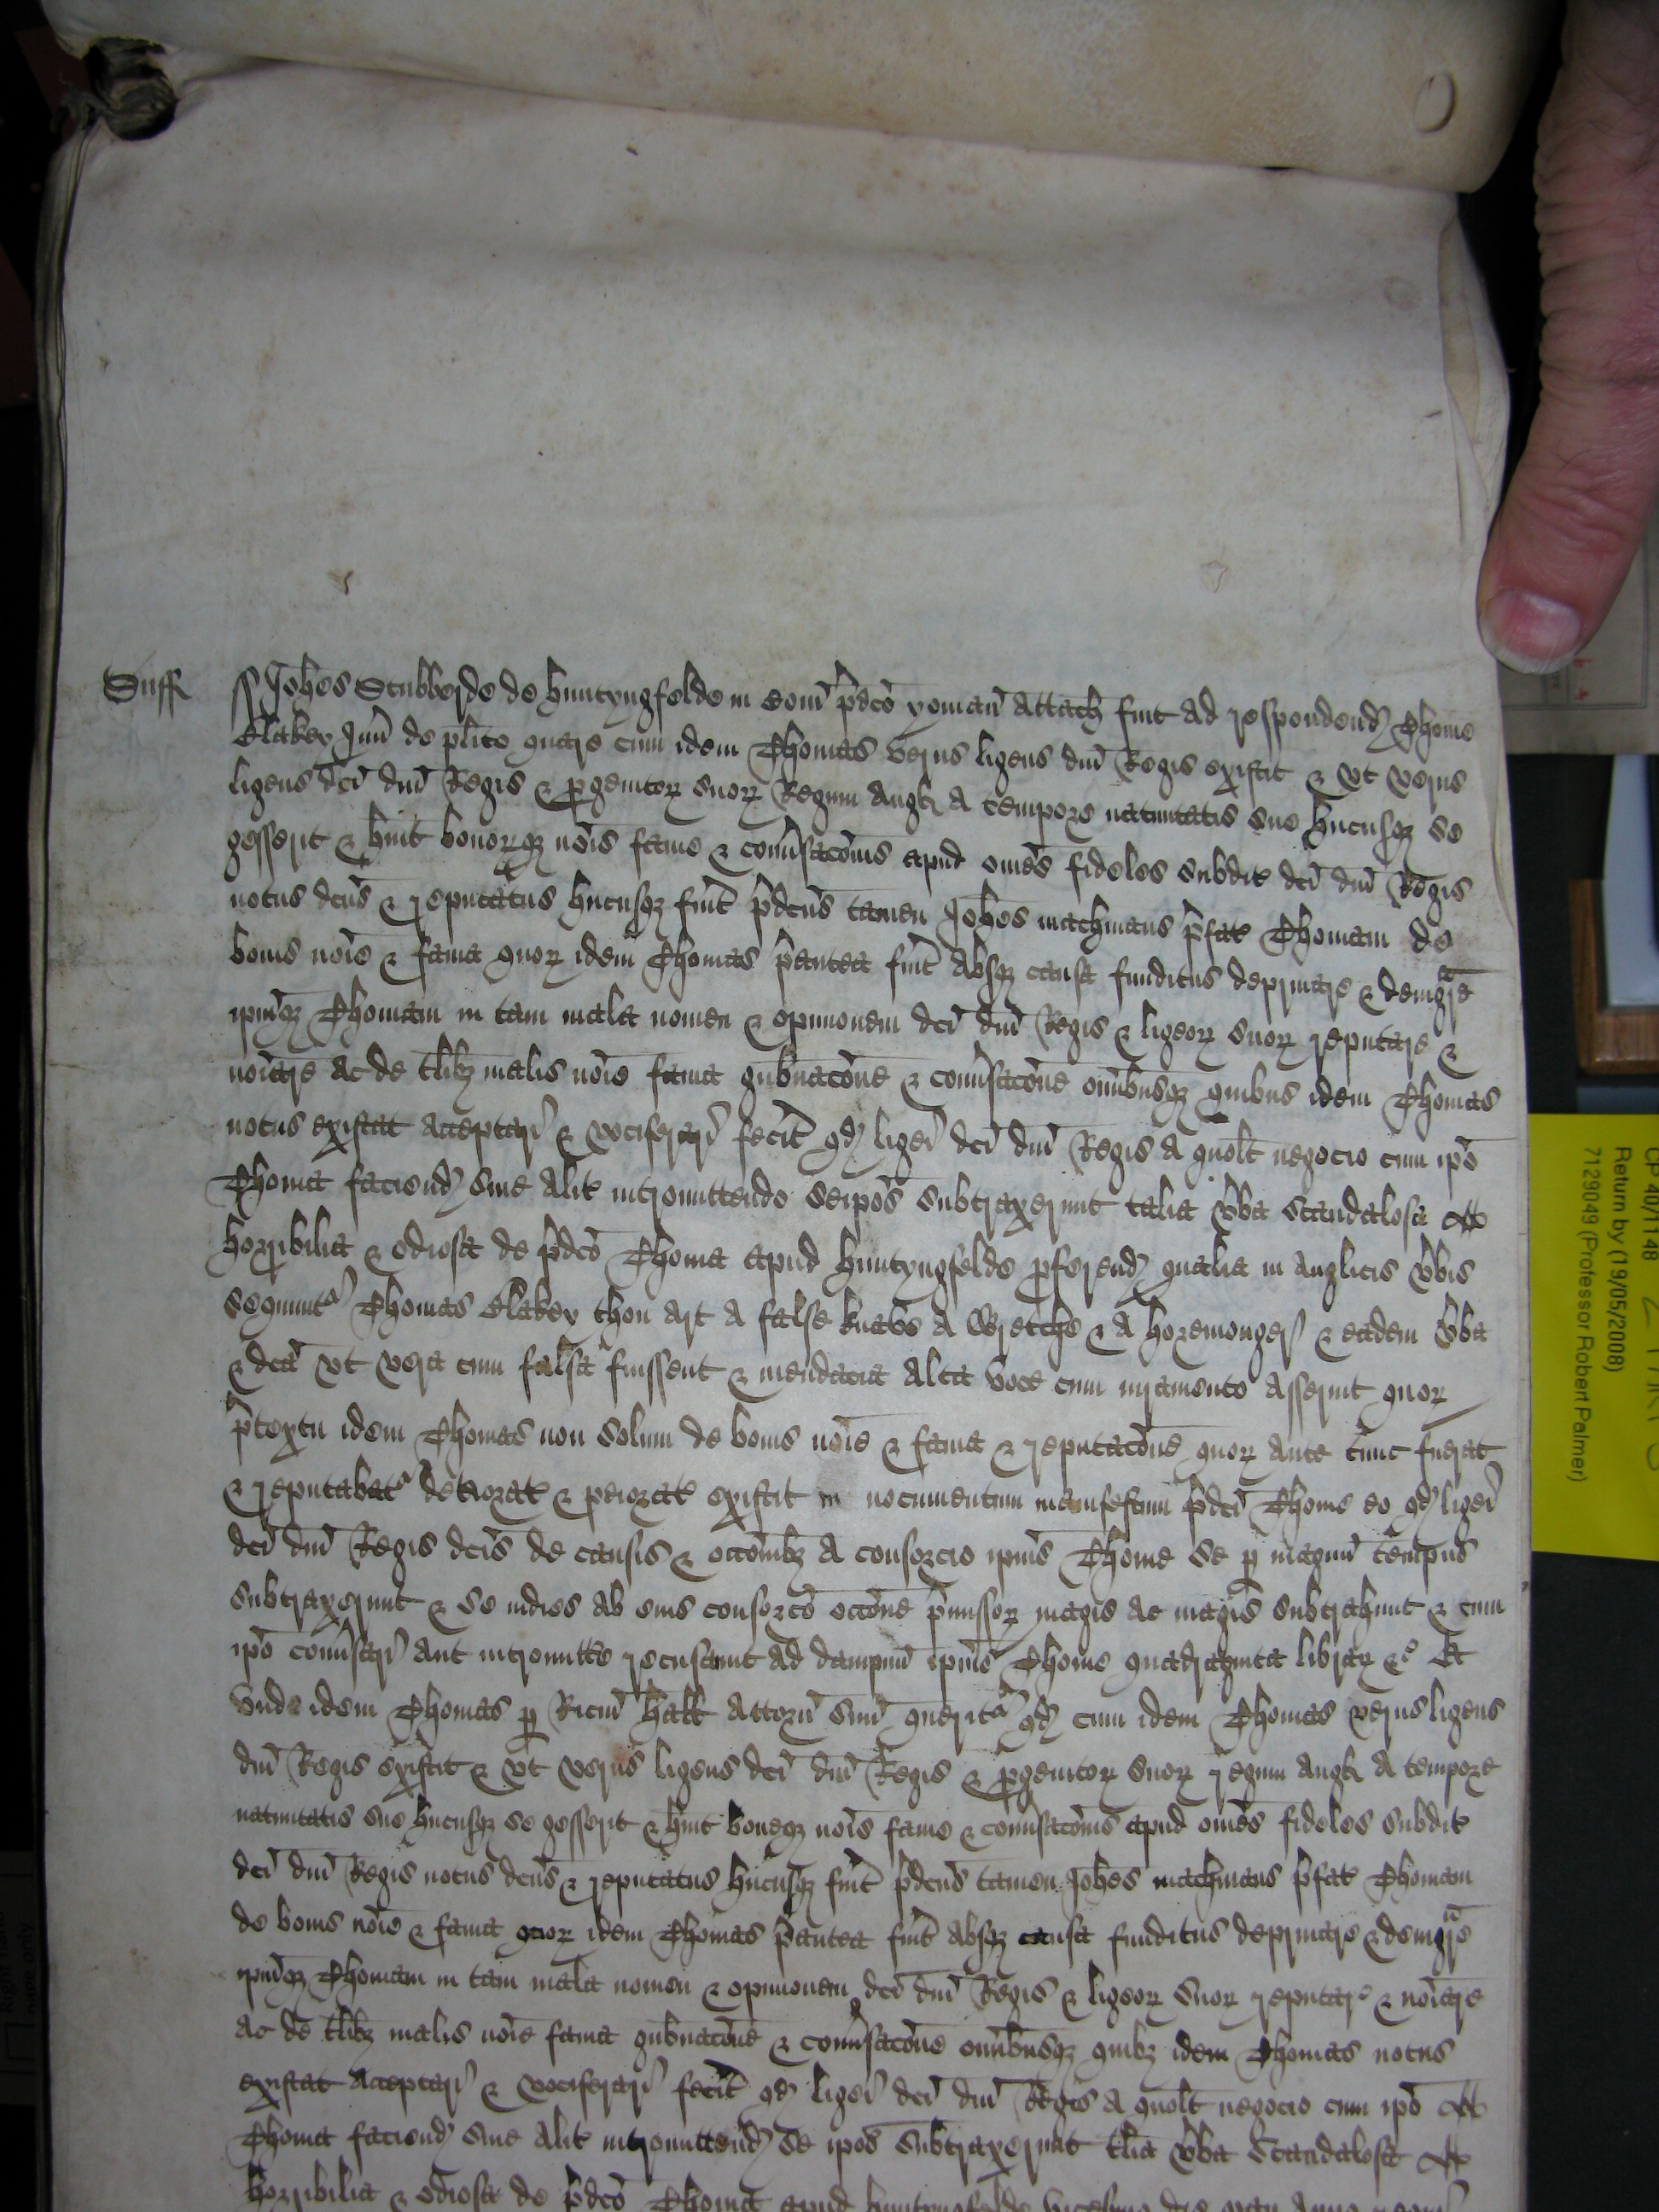 Suff ss Johes Stubberde de huntyngfelde in com pdco yoman attach fuit ad respondend Thome
Clakey Jun de plito quare cum idem Thomas verus ligeus dni Regis existit & vt verus
ligeus dci dni Regis & pgenitor suor Regum Angl a tempore natiuitatis sue hucusq se
gesserit & huit bonorq nois fame & conusacois apud omes fideles subdit dci dni Regis
notus dcus & reputatus hucusq fuit pdcus tamen Johes machinans pfat Thomam de
bonis noie & fama quor idem Thomas pantea fuit absq causa funditus depriuare & denigre
ipmq Thomam in tam mala nomen & opinionem dci dni Regis & ligeor suor reputare &
noiare ac de tlibz malis noie fama gubnacoe & conusacoe omibusq quibus idem Thomas
notus existat acceptari & vociferari fecit qd ligei dci dni Regis a quolt negocio cum ipo
Thoma faciend siue alit intromittendo seipos subtraxerunt talia vba scandalosa
horribilia & odiosa de pdco Thoma apud huntyngfelde pferend qualia in anglicis vbis
sequunt Thomas Clakey thou art a false knave a Wretche & a horemonger & eadem vba
& dca vt vera cum falsa fuissent & mendacia alta voce cum iuramento asseruit quor
ptextu idem Thomas non solum de bonis noie & fama & reputacoe quor ante tunc fuerat
& reputabat deteriorat & peiorat existit in nocumentum manifestum pdci Thome eo qd ligei
dci dni Regis dcis de causis & occoibz a consorcio ipius Thome se p magnu tempus
subtraxerunt & se indies ab eius consorco occoe pmissor magis ac magis subtrahunt & cum
ipo conusari aut intromitte recusarunt ad dampnu ipius Thome quadraginta librar &c Et
vnde idem Thomas p Ricm hall attorn suu querit qd cum idem Thomas verus ligeus
dni Regis existit & vt verus ligeus dci dni Regis & pgenitor suor regum Angl a tempore
natiuitatis sue hucusq se gesserit & huit boneq nois fame & conusacois apud omes fideles subdit
dci dni Regis notus dcus & reputatus hucusq fuit pdcus tamen Johes machinans pfat Thomam
de bonis noie & fama quor idem Thomas pantea fuit absq causa funditus depriuare & denigre
ipmq Thomam in tam mala nomen & opinionem dci dni Regis & ligeor suor reputare & noiare
ac de tlibz malis noie fama gubnacoe & conusacoe omibusq quibz idem Thomas notus
existat acceptari & vociferari fecit qd ligei dci dni Regis a quolt negocio cum ipo
Thoma faciend siue alit intromittend se ipos subtraxerunt tlia vba scandalosa
horribilia & odiosa de pdco Thoma apud huntyngfelde vicesimo die
CP 40/1148
Return by (19/05/2008)
7129049 (Professor Robert Palmer)